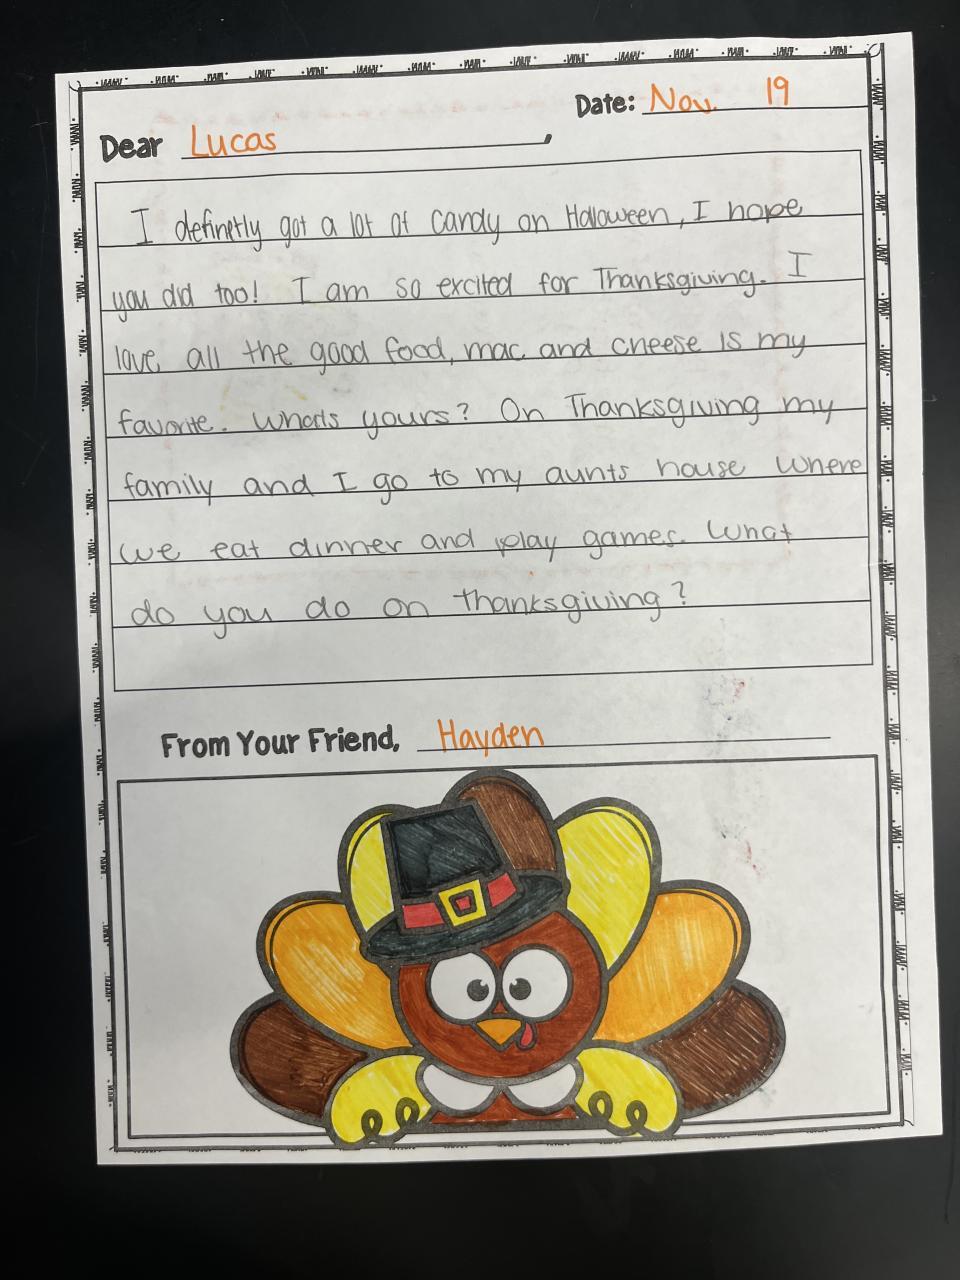 Date: Nov. 19
Dear Lucas,
I definetly got a lot of candy on Haloween, I hope
you did too! I am so excited for Thanksgiving. I
love all the good food, mac and cheese is my
favorite. Whats yours? On Thanksgiving my
family and I go to my aunts house where
we eat dinner and play games. What
do you do on thanksgiving?
From Your Friend, Hayden